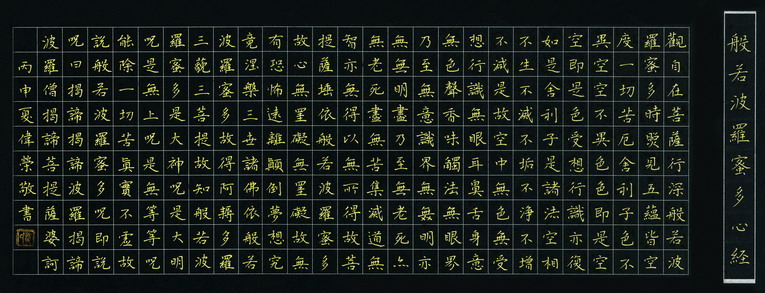 般若波羅蜜多心經
觀自在菩薩行深般若波
羅蜜多時照見五蘊皆空
度一切苦厄舍利子色不
異空空不異色色即是空
空即是色受想行識亦復
如是舍利子是諸法空相
不生不滅不垢不淨不增
不減是故空中無色無受
想行識無眼耳鼻舌身意
無色聲香味觸法無眼界
乃至無意識界無無明亦
無無明盡乃至無老死亦
無老死盡無苦集滅道無
智亦無得以無所得故菩
提薩埵依般若波羅蜜多
故心無罣礙無罣礙故無
有恐怖遠離顛倒夢想究
竟涅槃三世諸佛依般若
波羅蜜多故得阿耨多羅
三藐三菩提故知般若波
羅蜜多是大神呪是大明
呪是無上呪是無等等呪
能除一切苦真實不虛故
說般若波羅蜜多呪即說
呪曰揭諦揭諦波羅揭諦
波羅僧揭諦菩提薩婆訶
丙申夏偉榮敬書